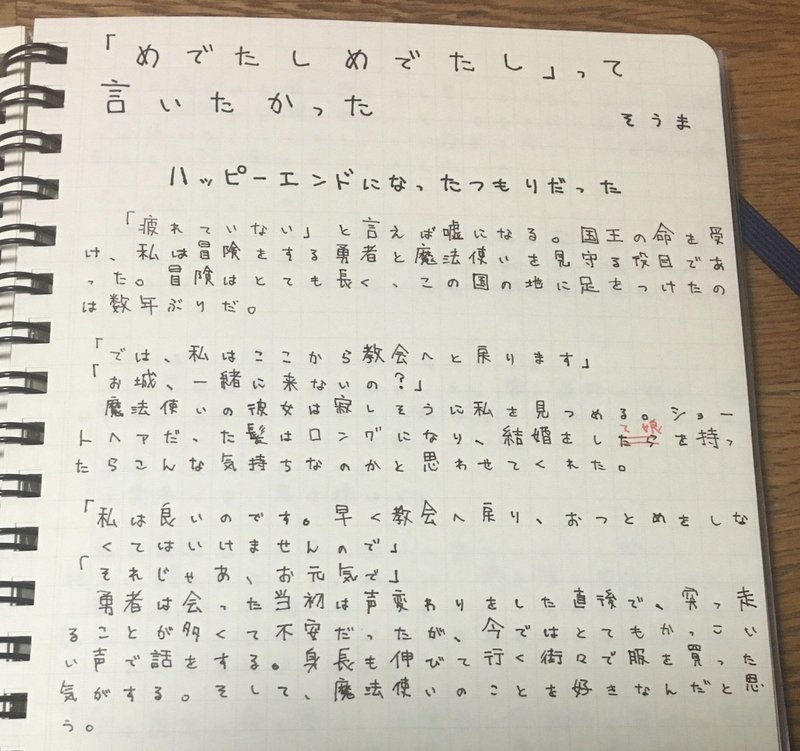 「めでたしめでたし」って
言いたかった
そうま
ハッピーエンドになったつもりだった
「疲れていない」と言えば嘘になる。国王の命を受
け、私は冒険をする勇者と魔法使いを見守る役目であ
った。冒険はとても長く、この国の地に足をつけたの
は数年ぶりだ。
「では、私はここから教会へと戻ります」
「お城、一緒に来ないの？」
魔法使いの彼女は寂しそうに私を見つめる。ショー
て娘
トヘアだった髪はロングになり、結婚をしたらを持っ
たらこんな気持ちなのかと思わせてくれた。
「私は良いのです。早く教会へ戻り、おつとめをしな
くてはいけませんので」
「それじゃあ、お元気で」
勇者は会った当初は声変わりをした直後で、突っ走
ることが多くて不安だったが、今ではとてもかっこい
い声で話をする。身長も伸びて行く街々で服を買った
気がする。そして、魔法使いのことを好きなんだと思
う。